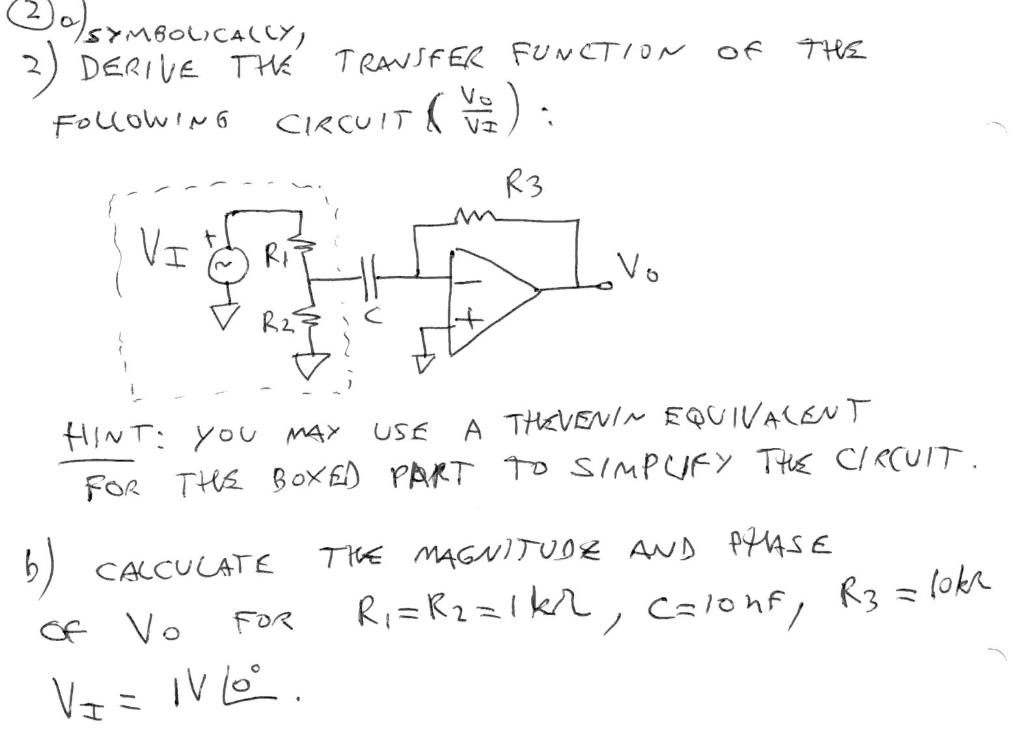 2 a) SYMBOLICALLY,
2) DERIVE THE TRANSFER FUNCTION OF THE
FOLLOWING CIRCUIT ( Vo/VI ) :
R3
VI + R1 Vo
C
R2
-
+
HINT: YOU MAY USE A THEVENIN EQUIVALENT
FOR THE BOXED PART TO SIMPLIFY THE CIRCUIT.
b) CALCULATE THE MAGNITUDE AND PHASE
OF Vo FOR R1=R2=1kΩ, C=10nF, R3=10kΩ
VI = 1V ∠0°.